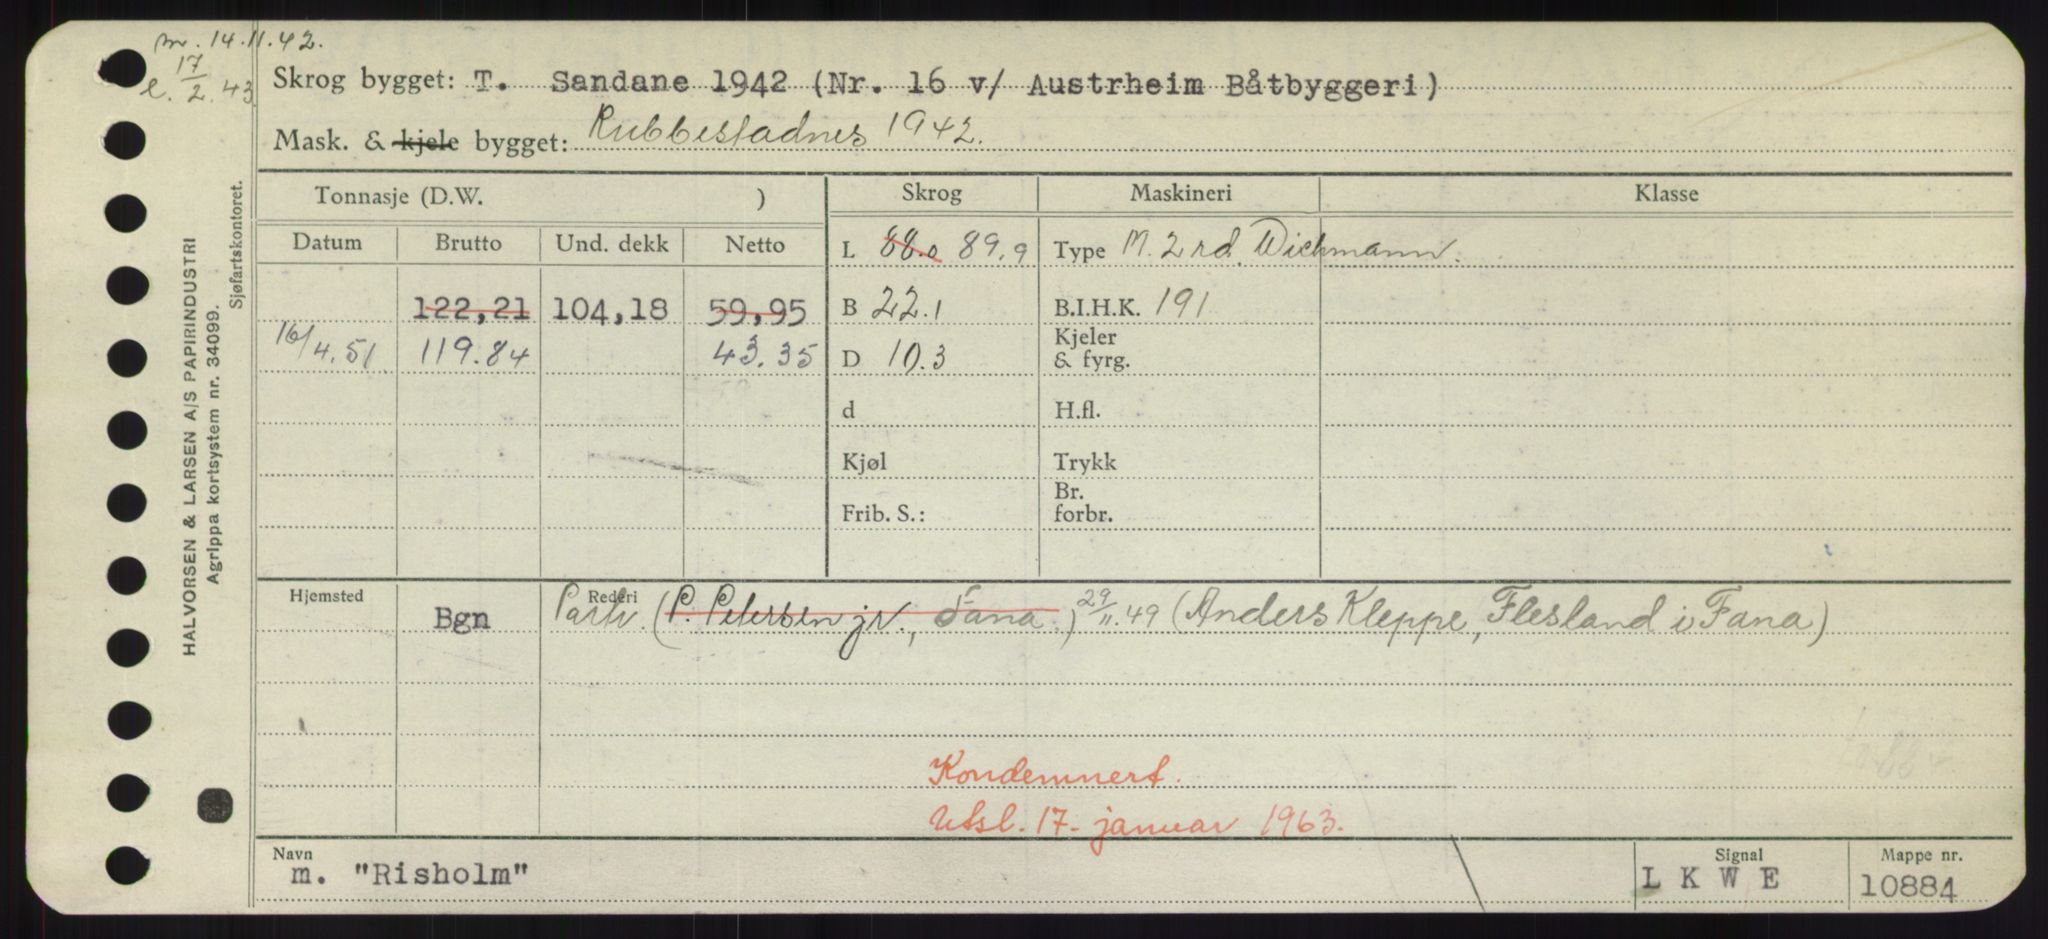 m. 14.11.42.
l. 17/2.43
Skrog bygget: T. Sandane 1942 (Nr. 16 v/ Austrheim Båtbyggeri)
Mask. & kjele bygget: Rubbestadnes 1942.
Tonnasje (D.W. )
Skrog
Maskineri
Klasse
Datum
Brutto
Und. dekk
Netto
L 88.0 89.9
Type M. 2 rd. Wichmann.
122,21
104,18
59,95
B 22.1
B.I.H.K. 191
16/4.51
119.84
43.35
D 10.3
Kjeler
& fyrg.
d
H.fl.
Kjøl
Trykk
Frib. S.:
Br.
forbr.
Hjemsted
Bgn
Rederi
Partr. (P. Petersen jr., Fana.) 29/11.49 (Anders Kleppe, Flesland i Fana)
Kondemnert.
Utsl. 17. januar 1963.
Navn
m. "Risholm"
Signal
L K W E
Mappe nr.
10884
HALVORSEN & LARSEN A/S PAPIRINDUSTRI
Agrippa kortsystem nr. 34099.
Sjøfartskontoret.